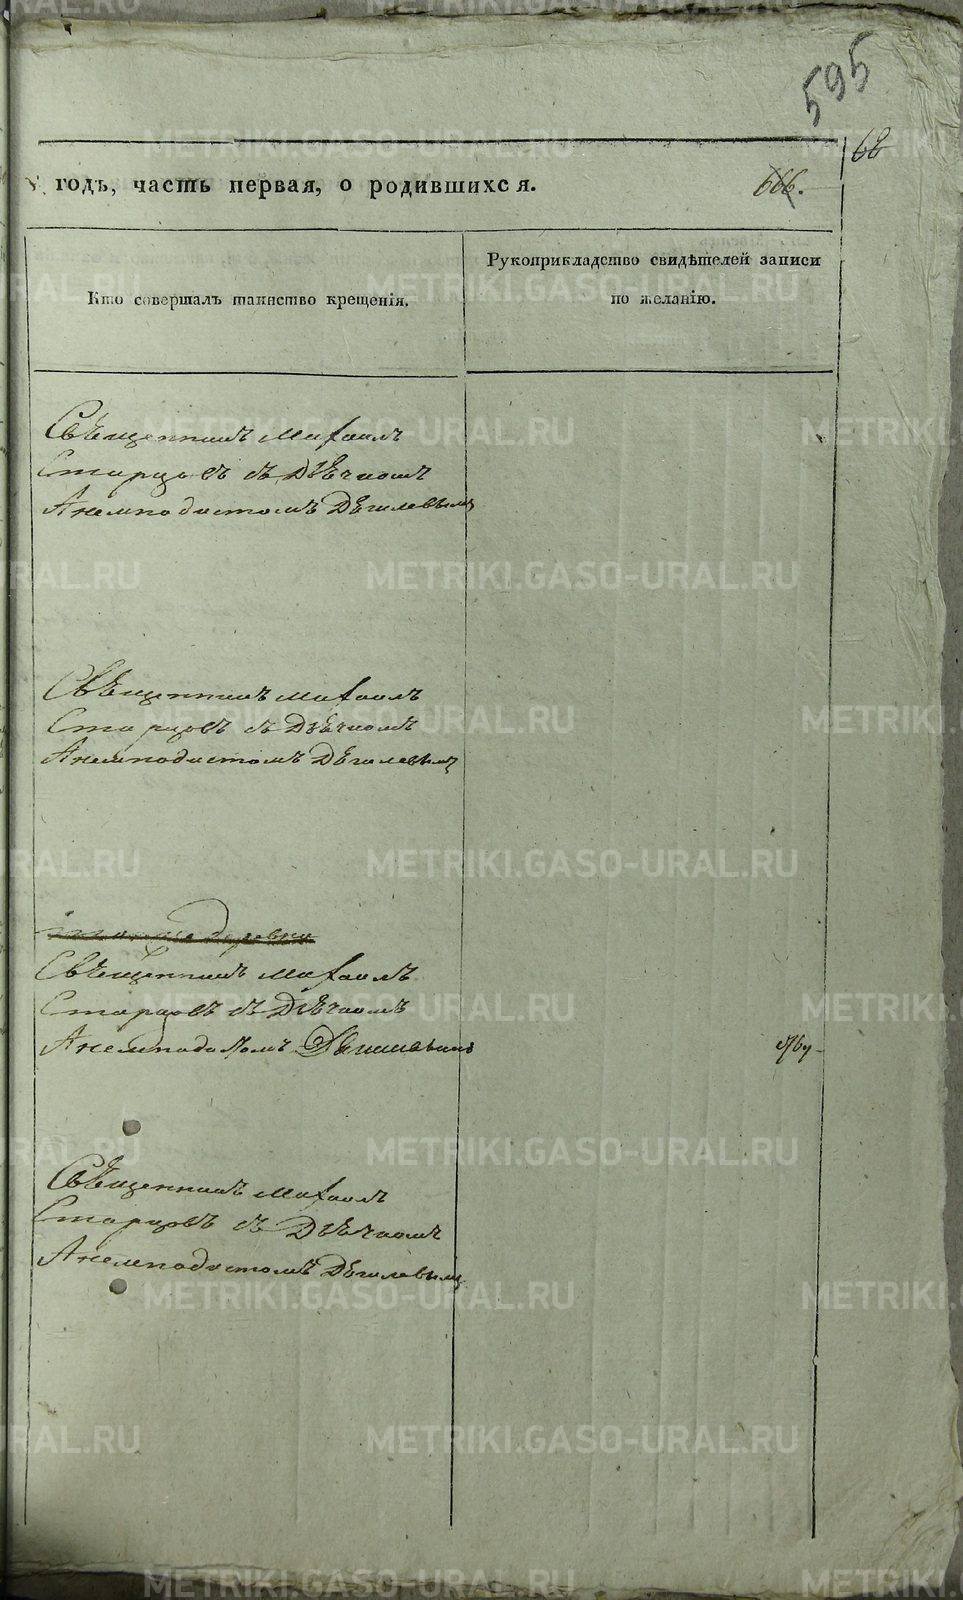 595
68
годъ, часть первая, о родившихся.
666.
Кто совершалъ таинство крещенія.
Рукоприкладство свидѣтелей записи
по желанію.
Свѣщенникъ Михаилъ
Старцовъ съ Дьѣчкомъ
Анемподистомъ Дѣгилевымъ
Свѣщенникъ Михаилъ
Старцовъ съ Дьѣчкомъ
Анемподистомъ Дѣгилевымъ
Свѣщенникъ Михаилъ
Старцовъ съ Дьѣчкомъ
Анемподистомъ
Свѣщенникъ Михаилъ
Старцовъ съ Дьѣчкомъ
Анемподистомъ Дѣгилевымъ
METRIKI.GASO-URAL.RU